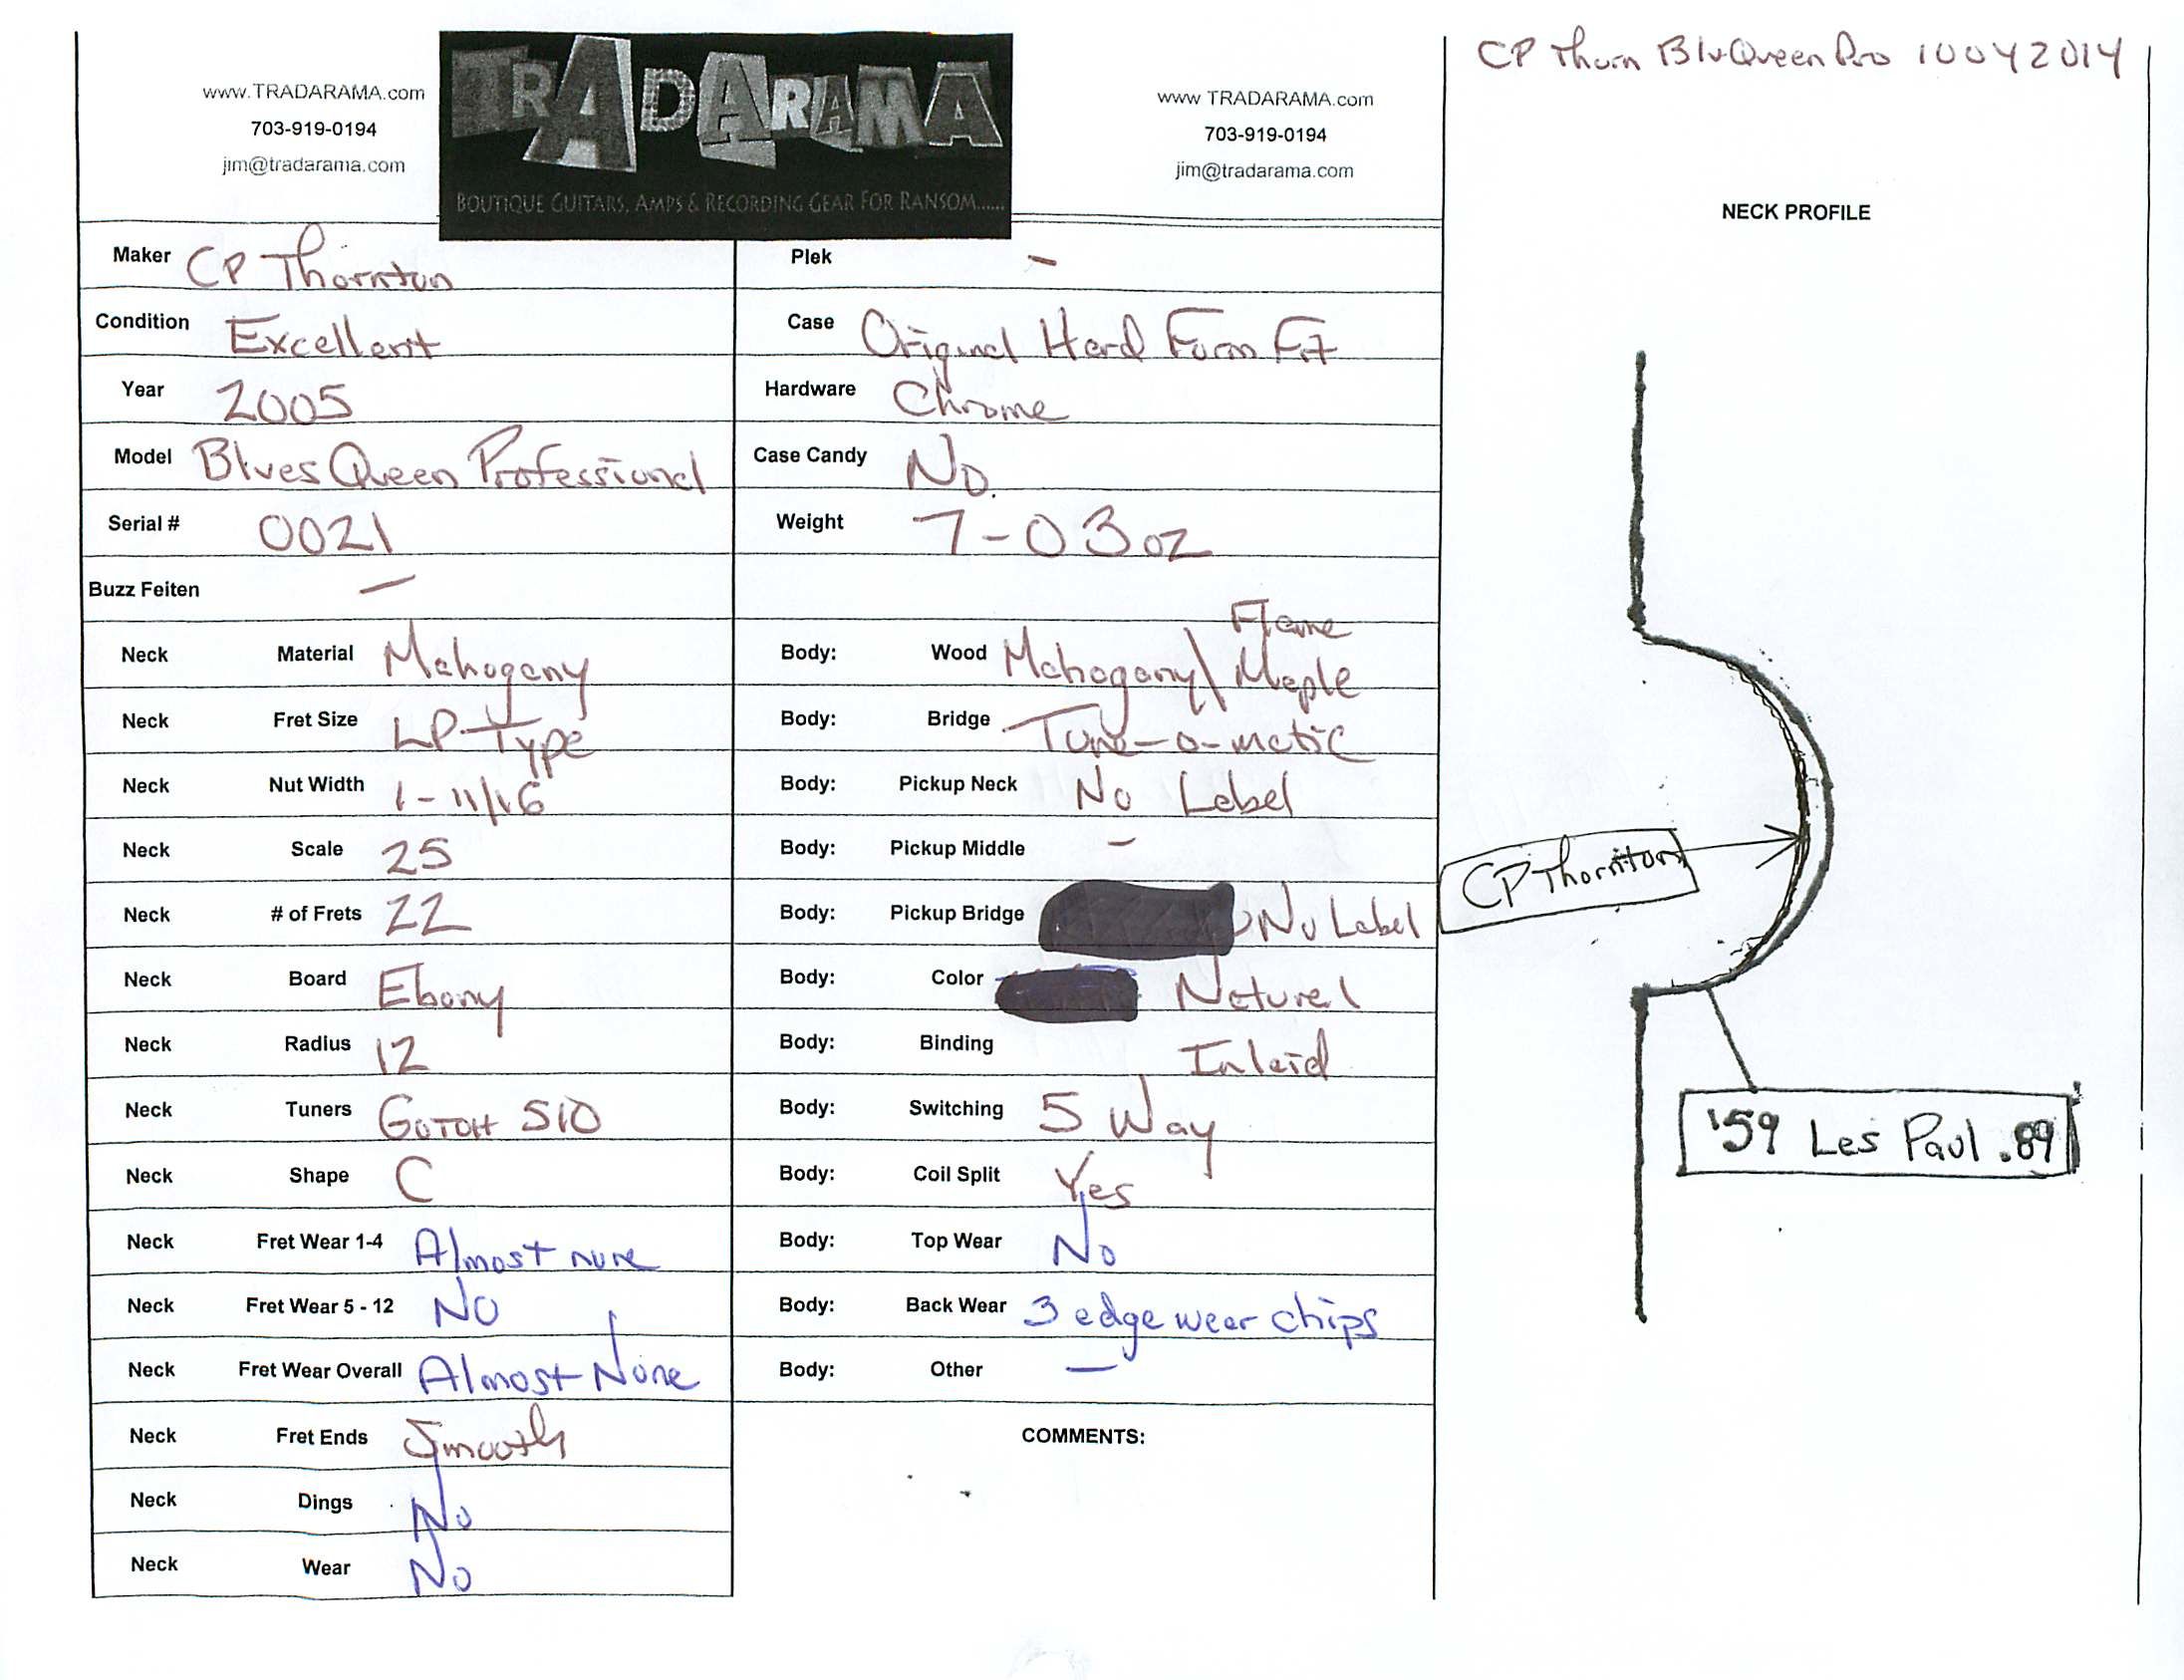 CP Thorn BluQueen Pro 10042014
www.TRADARAMA.com
703-919-0194
jim@tradarama.com
TRADARAMA
BOUTIQUE GUITARS, AMPS & RECORDING GEAR FOR RANSOM......
www TRADARAMA.com
703-919-0194
jim@tradarama.com
NECK PROFILE
Maker CP Thornton
Plek -
Condition Excellent
Case Original Hard Form Fit
Year 2005
Hardware Chrome
Model Blues Queen Professional
Case Candy No.
Serial # 0021
Weight 7-03oz
Buzz Feiten -
Neck Material Mahogany
Body: Wood Mahogany\ Flame Maple
Neck Fret Size LP-Type
Body: Bridge Tune-o-matic
Neck Nut Width 1-11/16
Body: Pickup Neck No Label
Neck Scale 25
Body: Pickup Middle -
Neck # of Frets 22
Body: Pickup Bridge No Label
Neck Board Ebony
Body: Color Natural
Neck Radius 12
Body: Binding Inlaid
Neck Tuners GOTOH 510
Body: Switching 5 Way
Neck Shape C
Body: Coil Split Yes
Neck Fret Wear 1-4 Almost none
Body: Top Wear No
Neck Fret Wear 5 - 12 NO
Body: Back Wear 3 edge wear chips
Neck Fret Wear Overall Almost None
Body: Other —
Neck Fret Ends Smooth
COMMENTS:
Neck Dings No
Neck Wear No
CP Thornton
'59 Les Paul .89